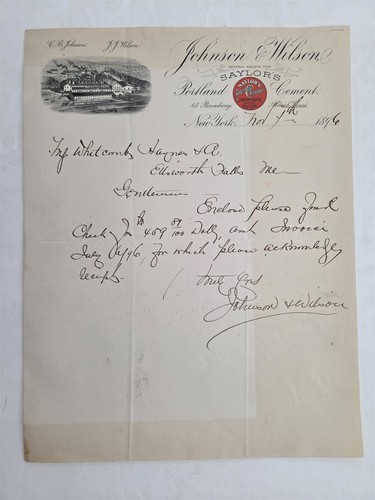 C.B. Johnson. J.J. Wilson.
Johnson & Wilson,
GENERAL AGENTS FOR
SAYLOR'S
Portland Cement.
45 Broadway,
New York, Nov 7th 1896
Whitcomb Haynes & Co
Ellsworth Falls Me
Gentlemen
Enclosed please find
Check for $ 409 89/100 Dolls, amt Invoice
July /96, for which please acknowledge
receipt
Truly Yrs
Johnson & Wilson